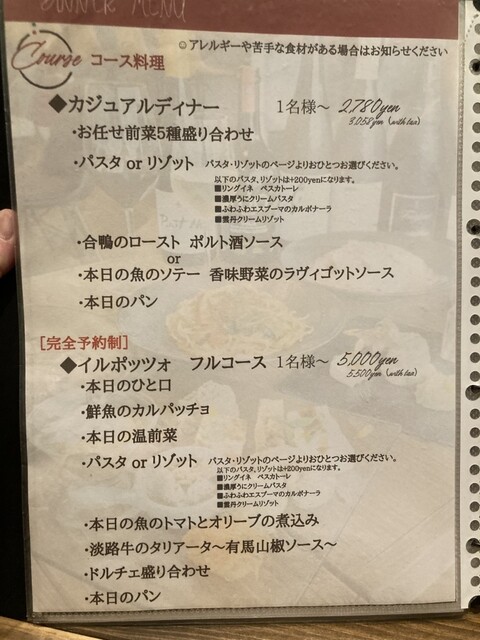 DINNER MENU
☺アレルギーや苦手な食材がある場合はお知らせください
Course コース料理
◆カジュアルディナー 1名様～ 2,780yen
3,058yen (with tax)
・お任せ前菜5種盛り合わせ
・パスタ or リゾット パスタ・リゾットのページよりおひとつお選びください。
以下のパスタ、リゾットは+200yenになります。
■リングイネ ペスカトーレ
■濃厚うにクリームパスタ
■ふわふわエスプーマのカルボナーラ
■雲丹クリームリゾット
・合鴨のロースト ポルト酒ソース
or
・本日の魚のソテー 香味野菜のラヴィゴットソース
・本日のパン
[完全予約制]
◆イルポッツォ フルコース 1名様～ 5,000yen
5,500yen (with tax)
・本日のひと口
・鮮魚のカルパッチョ
・本日の温前菜
・パスタ or リゾット パスタ・リゾットのページよりおひとつお選びください。
以下のパスタ、リゾットは+200yenになります。
■リングイネ ペスカトーレ
■濃厚うにクリームパスタ
■ふわふわエスプーマのカルボナーラ
■雲丹クリームリゾット
・本日の魚のトマトとオリーブの煮込み
・淡路牛のタリアータ～有馬山椒ソース～
・ドルチェ盛り合わせ
・本日のパン